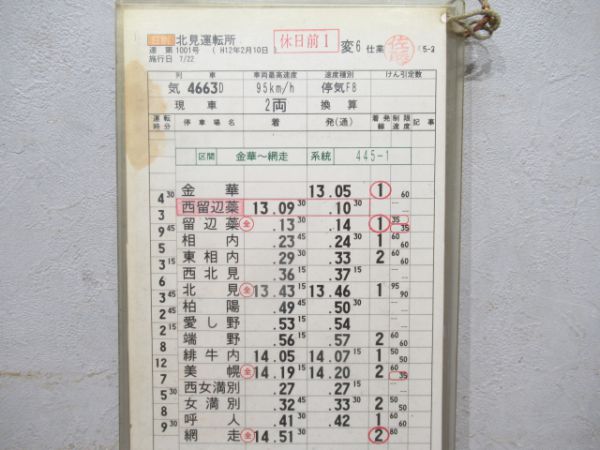 北見運転所 休日前1 変6 仕業 (5-3
運 第1001号 (H12年2月10日)
施行日 7/22
列車 車両最高速度 速度種別 けん引定数
気 4663D 95km/h 停気F8
現車 2両 換算
運転時分 停車場名 着 発(通) 着発線 制限速度 記事
区間 金華～網走 系統 445-1
金華 13.05 1 60
4 30
西留辺蘂 13.09 30 .10 30
3
留辺蘂 全 .13 .14 1 35 35
9 45
相内 .23 45 .24 30 1 60 60
5
東相内 .29 30 .33 2 60 60
3 15
西北見 .36 15 .37 15
6
北見 全 13.43 15 13.46 1 95 90
3 45
柏陽 .49 45 .50 30
2 45
愛し野 .53 15 .54
2 15
端野 .56 15 .57 2 60 60
8
緋牛内 14.05 14.07 15 1 50 50
12
美幌 全 14.19 15 14.20 2 60 35
7
西女満別 .27 .27 15
5 30
女満別 .32 45 .33 30 2 50 50
8
呼人 .41 .42 1 60 60
9 30
網走 全 14.51 30 2 80